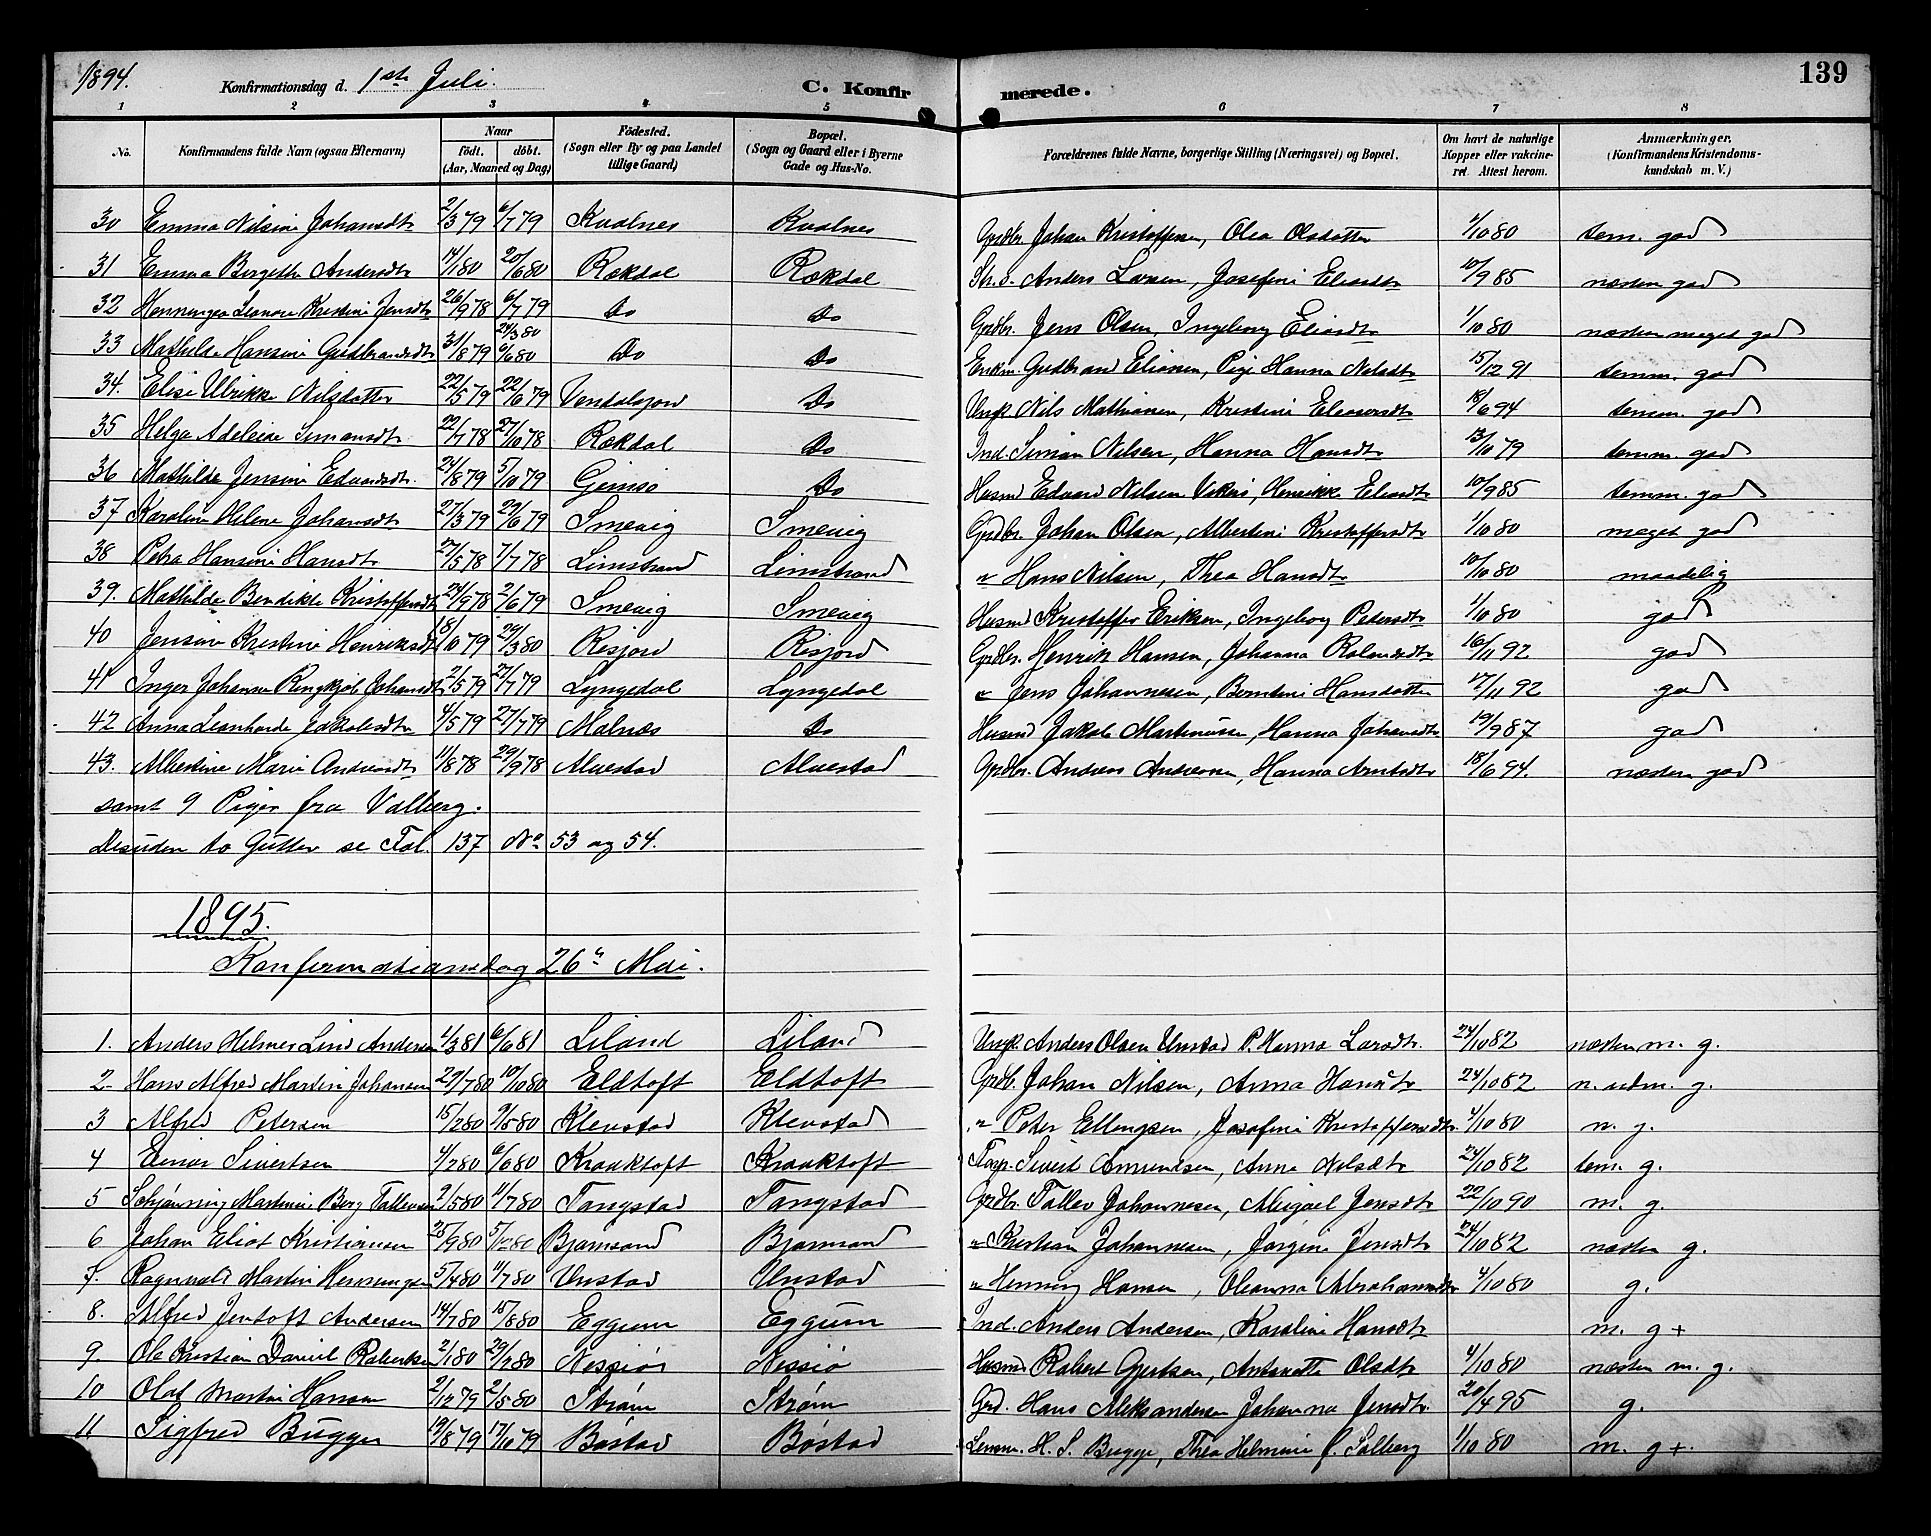 1894. Konfirmationsdag d. 1ste Juli. C. Konfir merede. 139
1 2 3 4 5 6 7 8
No. Konfirmandens fulde Navn (ogsaa Efternavn) Naar født. døbt. (Aar, Maaned og Dag) Fødested. (Sogn eller By og paa Landet tillige Gaard) Bopæl. (Sogn og Gaard eller i Byerne Gade og Hus-No. Forældrenes fulde Navne, borgerlige Stilling (Næringsvei) og Bopæl. Om havt de naturlige Kopper eller vakcineret. Attest herom. Anmærkninger, (Konfirmandens Kristendomskundskab m. V.)
30 Emma Nilsine Johansdtr 2/3 79 6/7 79 Kvalnes Kvalnes Grdbr. Johan Kristoffersen, Olea Olsdatter 1/10 80 tem. god
31 Emma Bergethe Andersdtr 14/1 80 20/6 80 Rækdal Rækdal Anders Larsen, Josefine Eliasdtr 10/9 85 næsten god
32 Henningea Leonore Kristine Jensdtr 26/9 78 6/7 79 Do Do Grdbr. Jens Olsen, Ingeborg Eliasdtr 1/10 80 næsten meget god
33 Mathilde Hansine Gudbrandsdtr 31/8 79 24/3 80 6/6 80 Do Do Enkm. Gudbrand Eliasen, Pige Hanna Nilsdtr 15/12 91 temm. god
34. Elise Ulrikke Nilsdatter 22/5 79 22/6 79 Vendalsjord Do Ungk. Nils Mathiasen, Kristine Eleasersdtr 18/6 94 temm. god
35 Helga Adeleide Simonsdtr 22/7 78 27/10 78 Rækdal Do Ind. Simon Nilsen, Hanna Hansdtr 13/10 79 temm. god
36 Mathilde Jensine Edvardsdtr. 24/8 79 5/10 79 Gimsø Do Husmd Edvard Nilsen Vikni, Henrikke Eliasdtr 10/9 85 temm. god
37 Karoline Helene Johansdtr 27/3 79 29/6 79 Smevig Smevig Grdbr. Johan Olsen, Albertine Kristoffersdtr 1/10 80 meget god
38 Petra Hansine Hansdtr 27/5 78 7/7 78 Limstrand Limstrand " Hans Nilsen, Thea Hansdtr 10/10 80 maadelig
39. Mathilde Bendikte Kristoffersdtr 24/9 78 2/6 79 Smevig Smevig Husmd Kristoffer Eriksen, Ingeborg Petersdtr 1/10 80 god
40 Jensine Kristine Henriksdtr 18/10 79 29/3 80 Risjord Risjord Grdbr. Henrik Hansen, Johanna Rolandsdtr 16/11 92 god
41 Inger Johanne Ringkjøb Johansdtr 2/5 79 27/7 79 Lyngedal Lyngedal " Jens Johannesen, Berntine Hansdatter 17/11 92 god
42 Anna Leonharde Jakobsdtr 4/5 79 27/7 79 Malnæs Do Husmd Jakob Martinusen, Hanna Johansdtr 19/9 87 god
43. Albertine Marie Andreasdtr 11/8 78 29/9 78 Alvestad Alvestad Grdbr. Andreas Andersen, Hanna Arntsdtr 18/6 94. næsten god
samt 9 Piger fra Valberg.
Desuden to Gutter se Fol. 137 No 53 og 54.
1895.
Konfirmationsdag 26de Mai.
1. Anders Helmer Lind Andersen 1/3 81 6/6 81 Liland Liland Ungk. Anders Olsen Unstad P. Hanna Larsdtr. 24/10 82 næsten m. g.
2. Hans Alfred Martin Johansen 29/7 80 10/10 80 Eldtoft Eldtoft Grdbr. Johan Nilsen, Anna Hansdtr 24/10 82 n. udm. g.
3 Alfred Petersen 15/2 80 9/5 80 Klevstad Klevstad " Peter Ellingsen, Josefine Kristoffersdtr 4/10 80 n. g.
4 Einar Sivertsen 4/2 80 6/6 80 Kraaktoft Kraaktoft Forp. Sivert Amundsen, Anna Nilsdtr 24/10 82 tem. g.
5 Schjønning Martinus Berg Tollevsen 2/5 80 11/7 80 Tangstad Tangstad Grdbr. Tollev Johannesen, Abigael Jensdtr 22/10 90 m. g.
6 Johan Eliot Kristiansen 25/9 80 5/12 80 Bjørnsand Bjørnsand " Kristian Johannesen, Jørgine Jensdtr 24/10 82 næsten g.
7. Ragnvald Martin Henningsen 5/4 80 11/7 80 Unstad Unstad " Henning Hansen, Oleanna Abrahamsdtr 4/10 80 g.
8. Alfred Jentoft Andersen 14/7 80 15/8 80 Eggum Eggum Ind. Anders Andersen, Karoline Hansdtr m. g +
9. Ole Kristian Daniel Robertsen 2/1 80 29/2 80 Ressiø Ressiø Husmd Robert Gjertsen, Antonette Olsdtr 4/10 80 næsten m. g.
10 Olaf Martin Hansen 2/12 79 2/5 80 Strøm Strøm Grd. Hans Aleksandersen Johanna Jensdtr. 20/4 95 g.
11 Sigfred Bugge 19/8 79 17/10 79 Bøstad Bøstad Lensm. H. S. Bugge, Thea Helmine f. Solberg 1/10 80 m. g +.